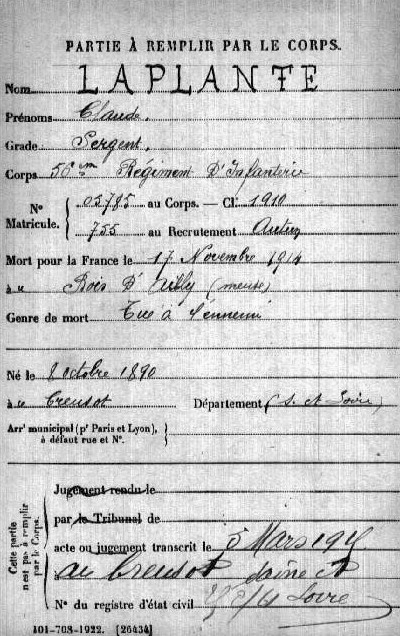 PARTIE À REMPLIR PAR LE CORPS.
Nom LAPLANTE
Prénoms Claude.
Grade Sergent.
Corps 56em Régiment D'Infanterie
No Matricule. { 05785 au Corps. — Cl. 1910
755 au Recrutement Autun
Mort pour la France le 17 Novembre 1914
à u Bois D'Ailly (meuse)
Genre de mort Tué à l'ennemi
Né le 8 octobre 1890
à u Creusot Département (S. et Loire)
Arrt municipal (pr Paris et Lyon), à défaut rue et No. }
Cette partie n'est pas à remplir par le Corps.
Jugement rendu le
par le Tribunal de
acte ou jugement transcrit le 5 Mars 1915
au Creusot Saône et
No du registre d'état civil Loire
101-708-1922. [26434]